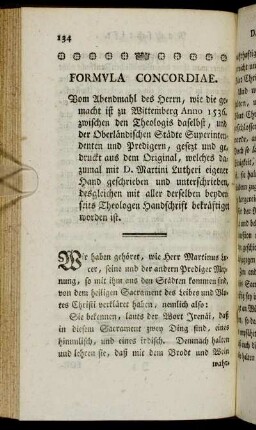 134
FORMVLA CONCORDIAE.
Vom Abendmahl des Herrn, wie die ge-
macht ist zu Wittemberg Anno 1536.
zwischen den Theologis daselbst, und
der Oberländischen Städte Superinten-
denten und Predigern, gesezt und ge-
druckt aus dem Original, welches da-
zumal mit D. Martini Lutheri eigener
Hand geschrieben und unterschrieben,
desgleichen mit aller derselben beyder-
seits Theologen Handschrift bekräftiget
worden ist.
Wir haben gehöret, wie Herr Martinus
cer, seine und der andern Prediger Mey-
nung, so mit ihm aus den Städten kommen sind,
von dem heiligen Sacrament des Leibes und Blu-
tes Christi verkläret haben, nemlich also:
Sie bekennen, lauts der Wort Irenäi, daß
in diesem Sacrament zwey Ding sind, eines
himmlisch, und eines irdisch. Demnach halten
und lehren sie, daß mit dem Brode und Wein
wahr-